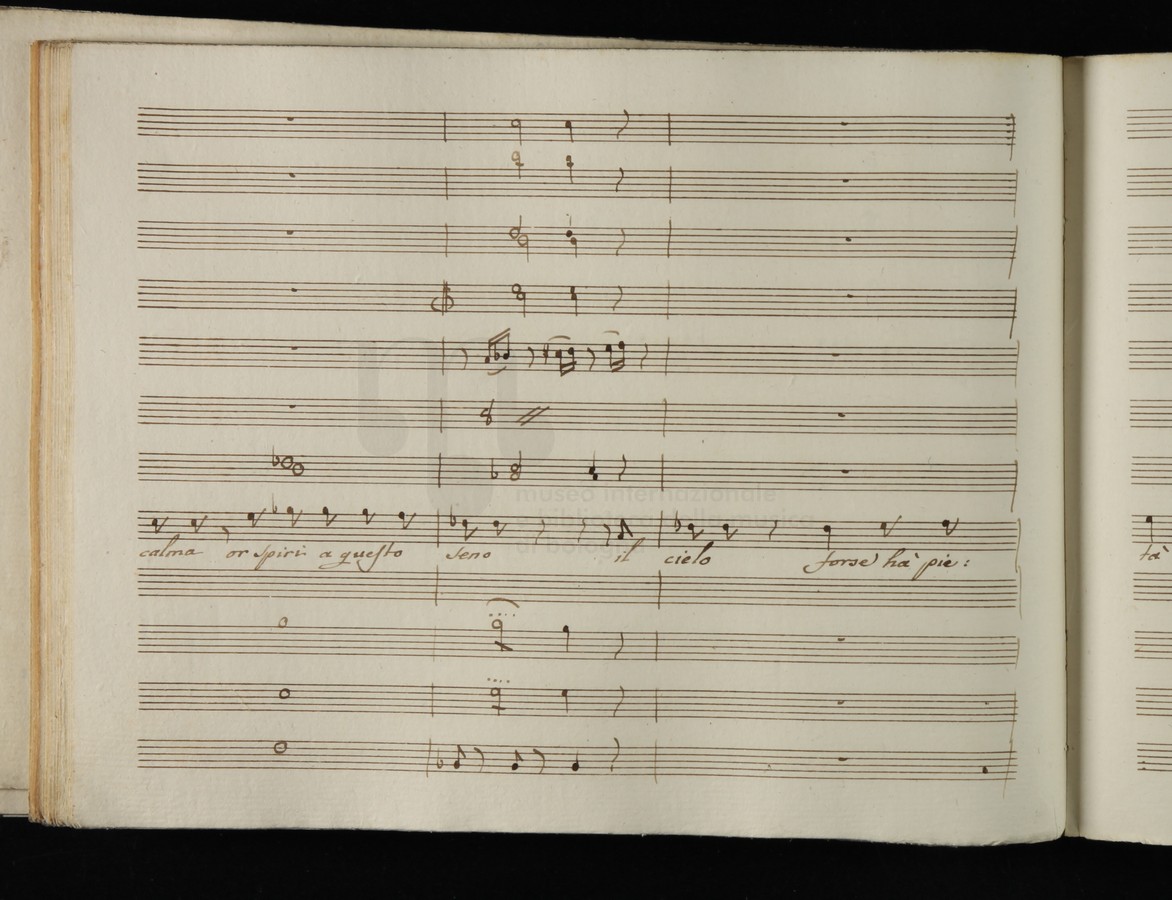 museo internazionale
e biblioteca della musica
di bologna
calma or spiri a questo seno il cielo forse hà pie:
tà